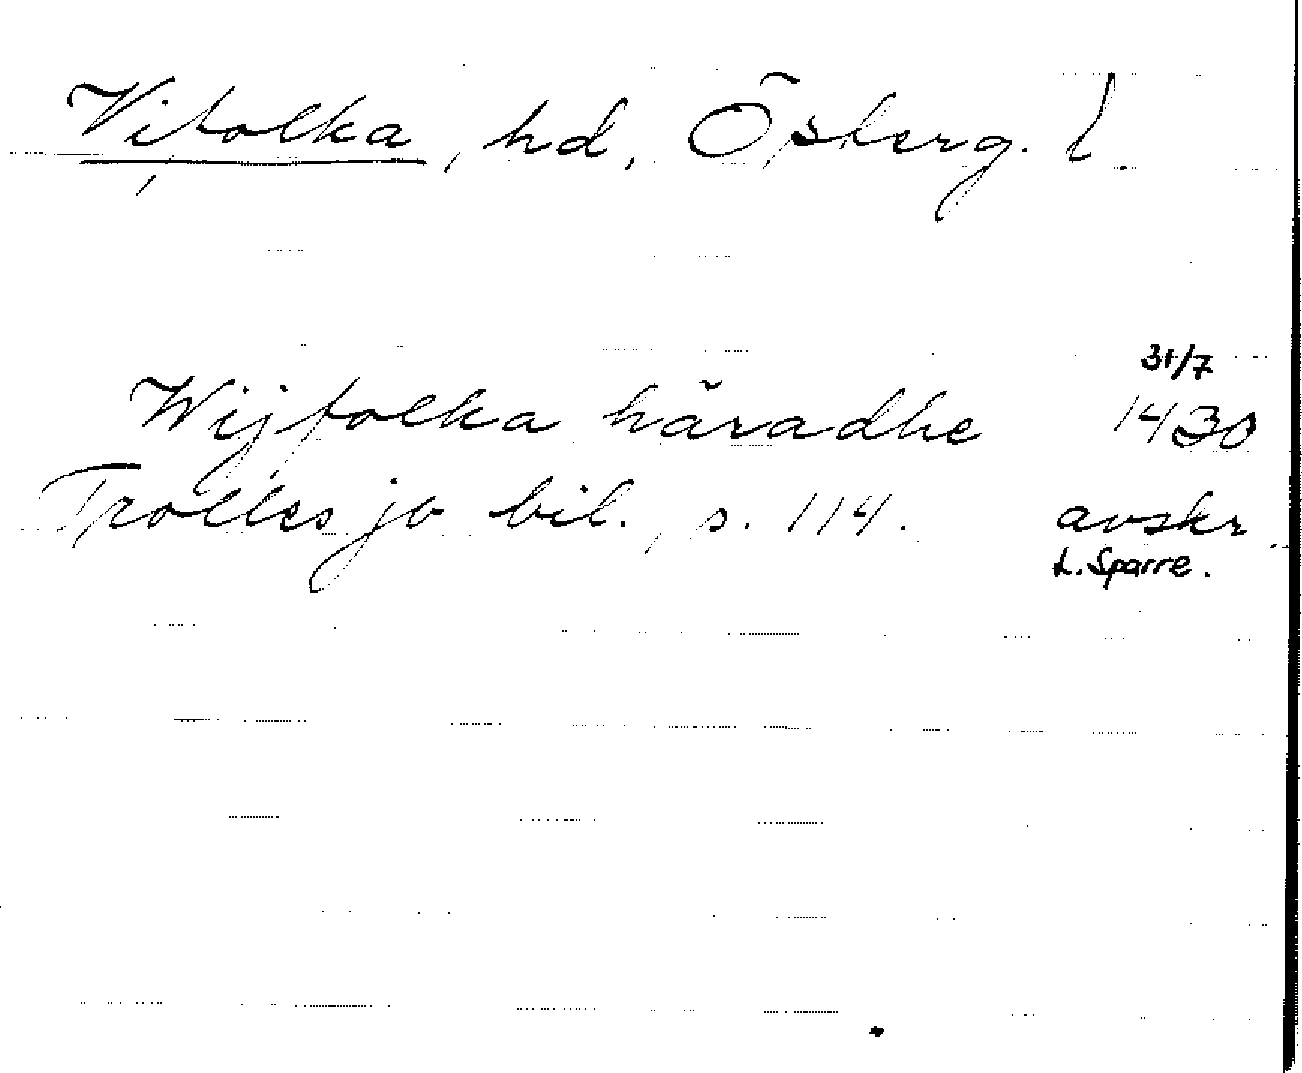 Vifolka, hd, Österg. l.
31/7
Wijfolka häradhe 1430
Trolles jb bil., s. 114. avskr.
L. Sparre.